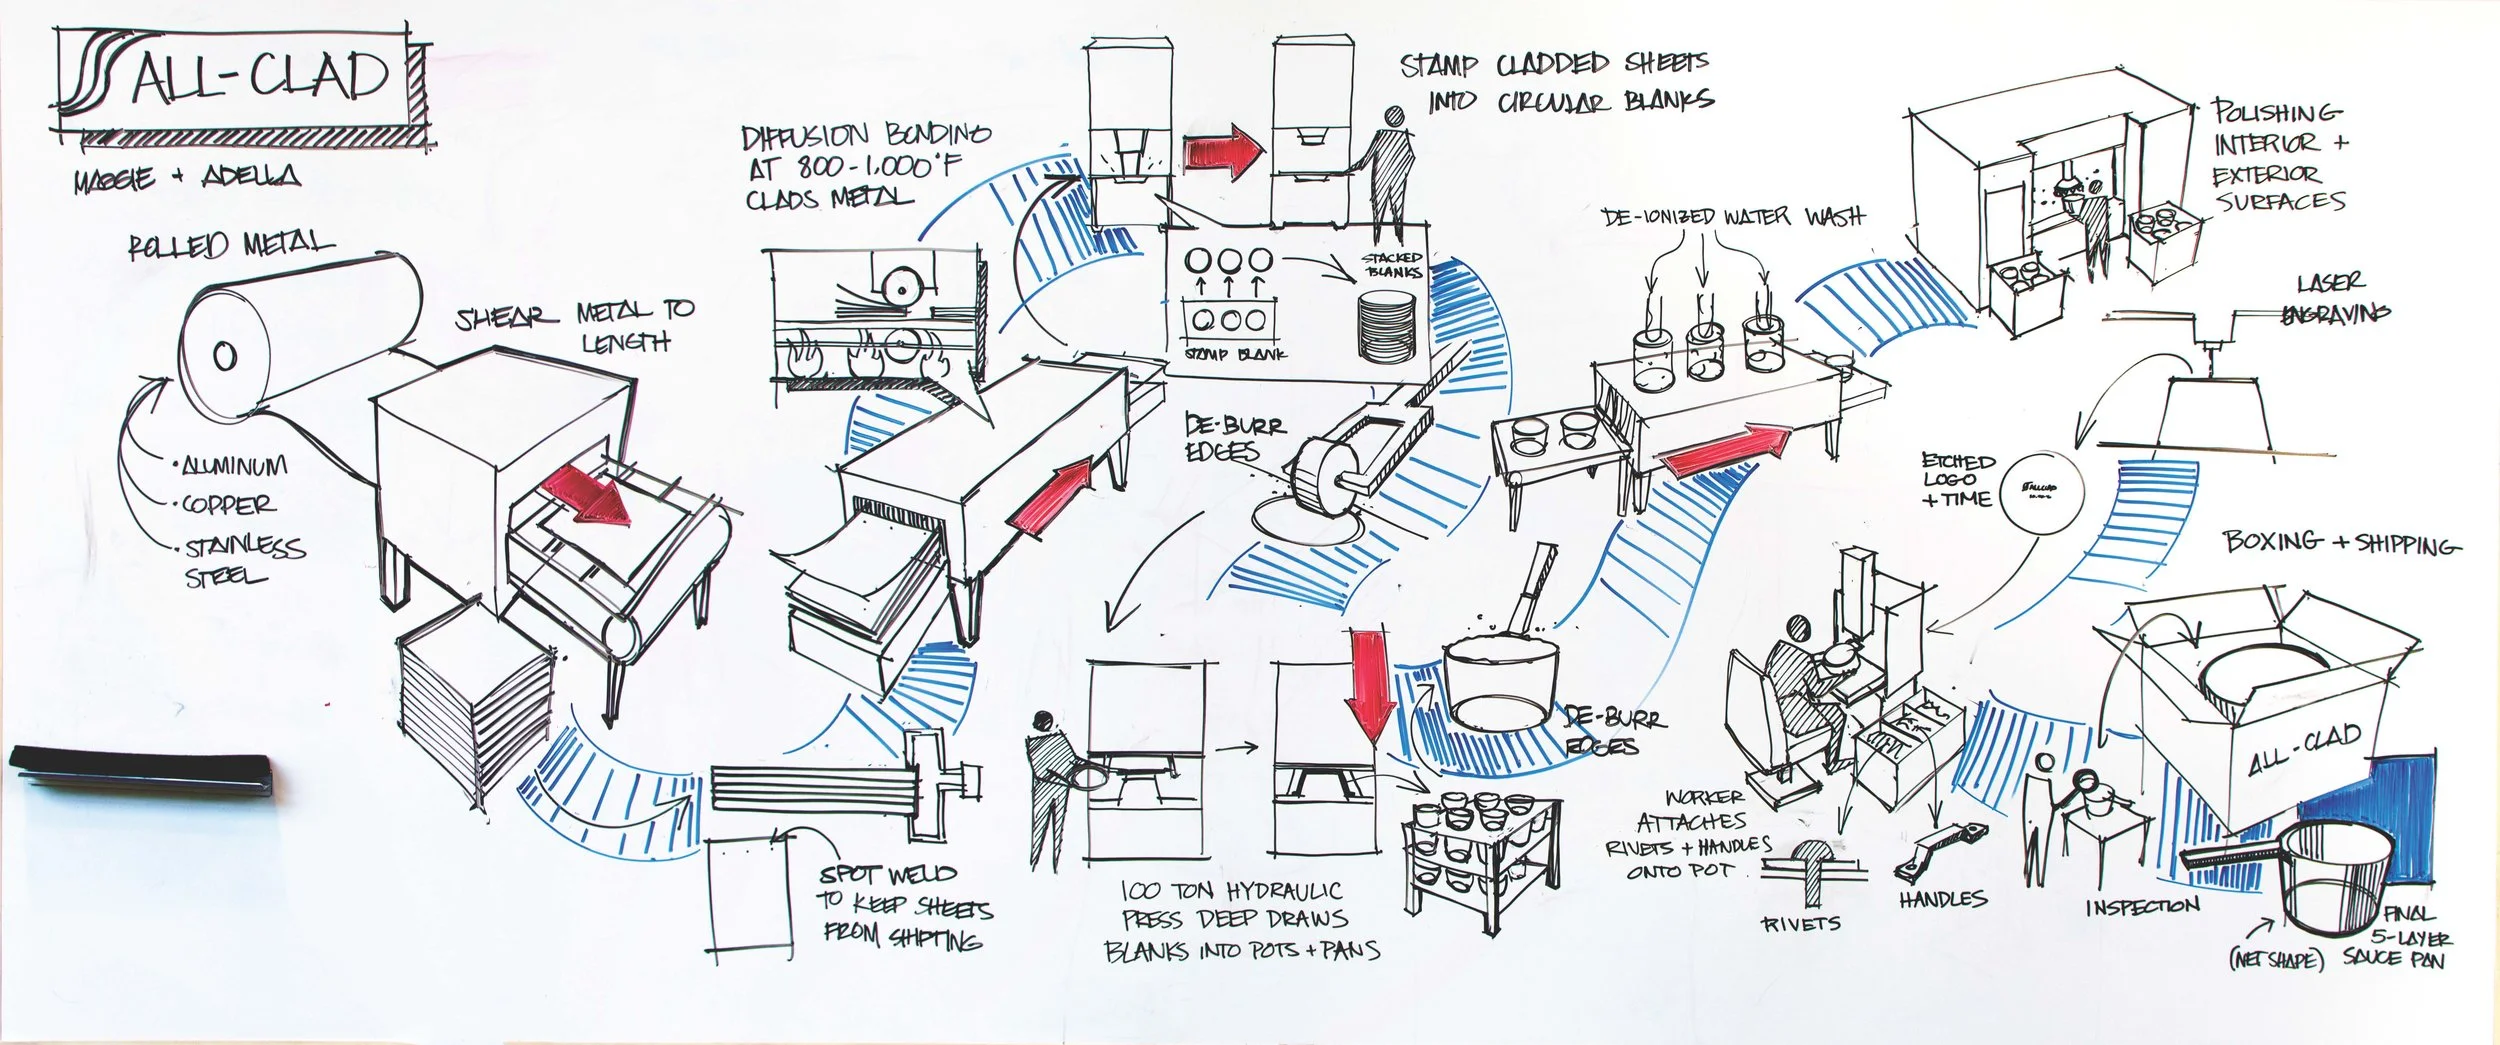 ALL-CLAD
MAGGIE + ADELLA
ROLLED METAL
• ALUMINUM
• COPPER
• STAINLESS
STEEL
SHEAR METAL TO
LENGTH
SPOT WELD
TO KEEP SHEETS
FROM SHIFTING
DIFFUSION BONDING
AT 800-1,000°F
CLADS METAL
STAMP CLADDED SHEETS
INTO CIRCULAR BLANKS
STAMP BLANK
STACKED
BLANKS
DE-BURR
EDGES
100 TON HYDRAULIC
PRESS DEEP DRAWS
BLANKS INTO POTS + PANS
DE-BURR
EDGES
DE-IONIZED WATER WASH
POLISHING
INTERIOR +
EXTERIOR
SURFACES
LASER
ENGRAVING
ETCHED
LOGO
+ TIME
ALLCLAD
WORKER
ATTACHES
RIVETS + HANDLES
ONTO POT
RIVETS
HANDLES
INSPECTION
BOXING + SHIPPING
ALL-CLAD
(NET SHAPE)
FINAL
5-LAYER
SAUCE PAN